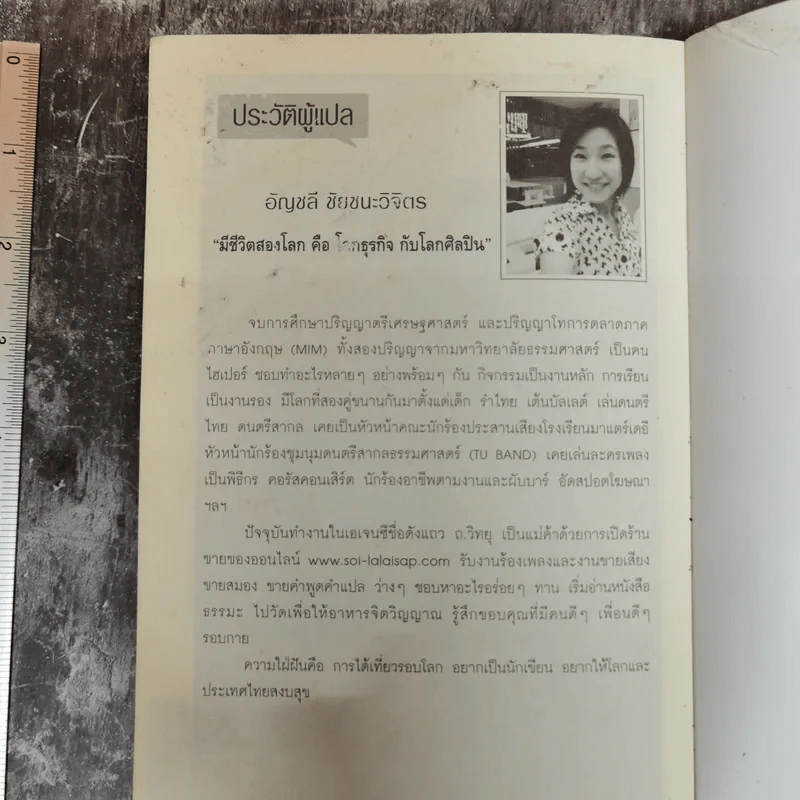 0
1
2
2
ประวัติผู้แปล
อัญชลี ชัยชนะวิจิตร
“มีชีวิตสองโลก คือ โลกธุรกิจ กับโลกศิลปิน”
จบการศึกษาปริญญาตรีเศรษฐศาสตร์ และปริญญาโทการตลาดภาค
ภาษาอังกฤษ (MIM) ทั้งสองปริญญาจากมหาวิทยาลัยธรรมศาสตร์ เป็นคน
ไฮเปอร์ ชอบทำอะไรหลายๆ อย่างพร้อมๆ กัน กิจกรรมเป็นงานหลัก การเรียน
เป็นงานรอง มีโลกที่สองคู่ขนานกันมาตั้งแต่เด็ก รำไทย เต้นบัลเลต์ เล่นดนตรี
ไทย ดนตรีสากล เคยเป็นหัวหน้าคณะนักร้องประสานเสียงโรงเรียนมาแตร์เดอี
หัวหน้านักร้องชุมนุมดนตรีสากลธรรมศาสตร์ (TU BAND) เคยเล่นละครเพลง
เป็นพิธีกร คอรัสคอนเสิร์ต นักร้องอาชีพตามงานและผับบาร์ อัดสปอตโฆษณา
ฯลฯ
ปัจจุบันทำงานในเอเจนซีชื่อดังแถว ถ.วิทยุ เป็นแม่ค้าด้วยการเปิดร้าน
ขายของออนไลน์ www.soi-lalaisap.com รับงานร้องเพลงและงานขายเสียง
ขายสมอง ขายคำพูดคำแปล ว่างๆ ชอบหาอะไรอร่อยๆ ทาน เริ่มอ่านหนังสือ
ธรรมะ ไปวัดเพื่อให้อาหารจิตวิญญาณ รู้สึกขอบคุณที่มีคนดีๆ เพื่อนดีๆ
รอบกาย
ความใฝ่ฝันคือ การได้เที่ยวรอบโลก อยากเป็นนักเขียน อยากให้โลกและ
ประเทศไทยสงบสุข